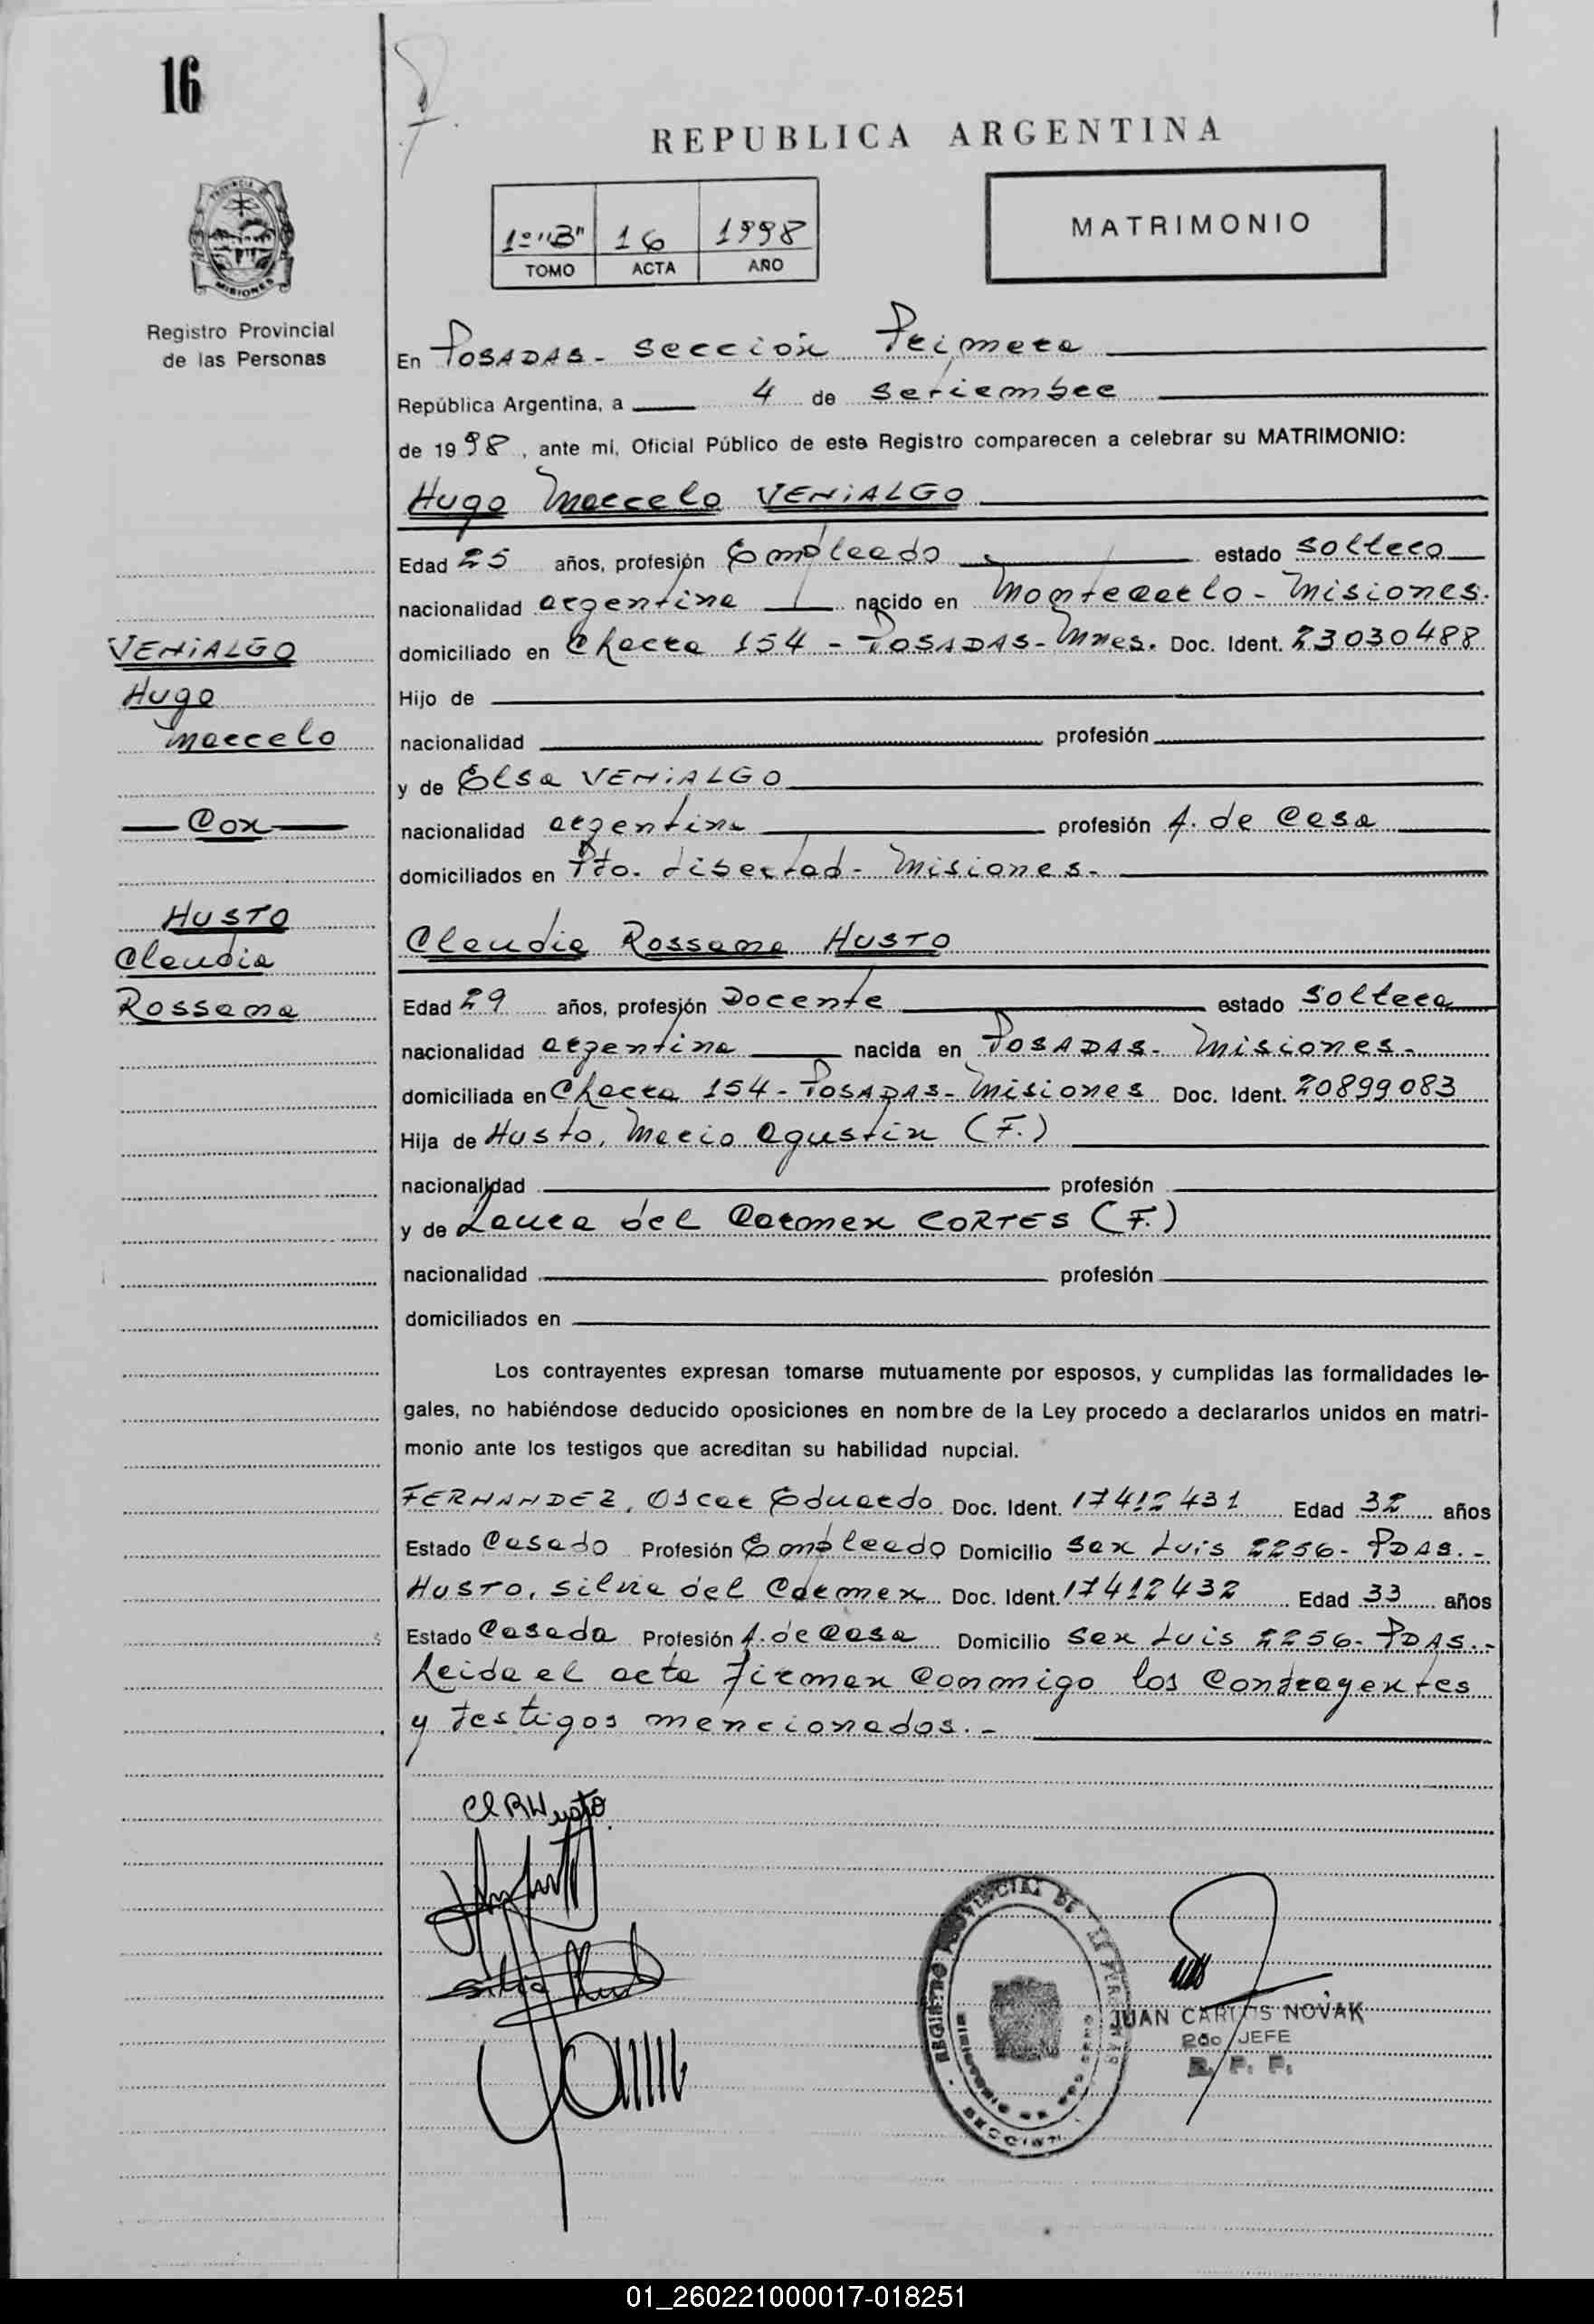 16
REPUBLICA ARGENTINA
1º "B" 16 1998
TOMO ACTA AÑO
MATRIMONIO
PROVINCIA
MISIONES
Registro Provincial
de las Personas
En POSADAS - Sección Primera
República Argentina, a 4 de Setiembre
de 1998, ante mí, Oficial Público de este Registro comparecen a celebrar su MATRIMONIO:
Hugo Marcelo VENIALGO
Edad 25 años, profesión Empleado estado Soltero
nacionalidad argentina nacido en Montecarlo - Misiones.
domiciliado en Chacra 154 - POSADAS - Mnes. Doc. Ident. 23030488
Hijo de
nacionalidad profesión
y de Elsa VENIALGO
nacionalidad argentina profesión A. de Casa
domiciliados en Pto. Libertad - Misiones.-
VENIALGO
Hugo
Marcelo
Con
HUSTO
Claudia
Rossana
Claudia Rossana HUSTO
Edad 29 años, profesión Docente estado Soltera
nacionalidad argentina nacida en POSADAS - Misiones.-
domiciliada en Chacra 154 - POSADAS - Misiones Doc. Ident. 20899083
Hija de Husto, Mario Agustín (F.)
nacionalidad profesión
y de Laura del Carmen CORTES (F.)
nacionalidad profesión
domiciliados en
Los contrayentes expresan tomarse mutuamente por esposos, y cumplidas las formalidades le-
gales, no habiéndose deducido oposiciones en nombre de la Ley procedo a declararlos unidos en matri-
monio ante los testigos que acreditan su habilidad nupcial.
FERNANDEZ, Oscar Eduardo Doc. Ident. 17412431 Edad 32 años
Estado Casado Profesión Empleado Domicilio San Luis 2256 - PDAS.-
HUSTO, Silvia del Carmen Doc. Ident. 17412432 Edad 33 años
Estado Casada Profesión A. de Casa Domicilio San Luis 2256 - PDAS.-
Leida el acta firman conmigo los Contrayentes
y testigos mencionados.-
Cl R Husto
REGISTRO PROVINCIAL DE LAS PERSONAS
JUAN CARLOS NOVAK
2do JEFE
R. P. P.
01_260221000017-018251